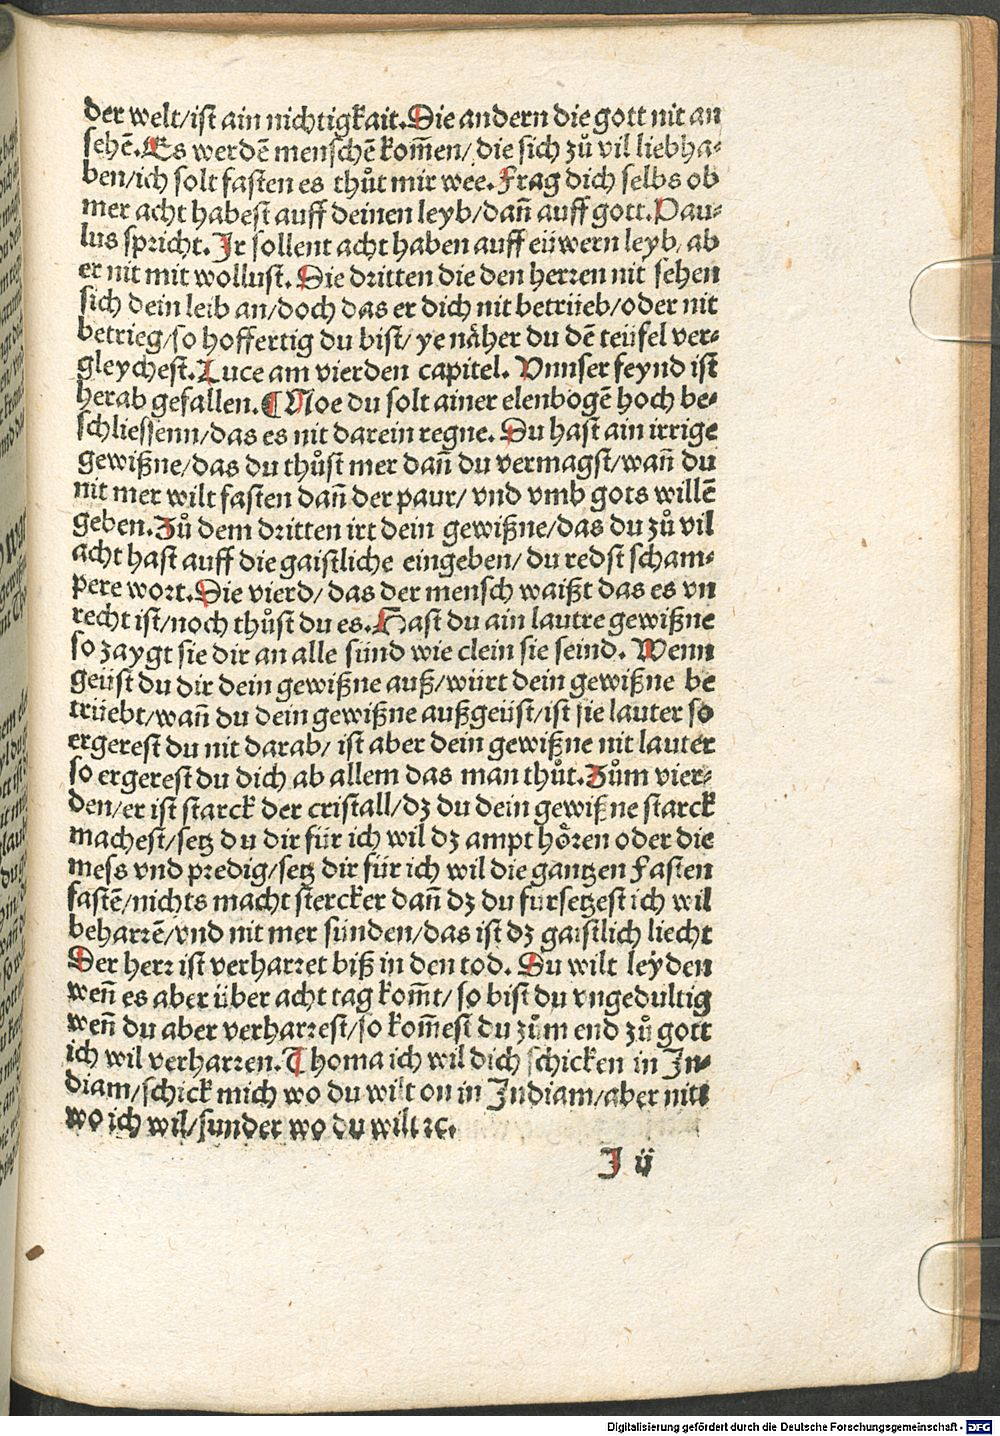 der welt/ist ain nichtigkait. Die andern die gott nit an
sehē. Es werdē menschē kom̄en/die sich zů vil liebha-
ben/ich solt fasten es thůt mir wee. Frag dich selbs ob
mer acht habest auff deinen leyb/dan̄ auff gott. Pau-
lus spricht. Jr sollent acht haben auff eüwern leyb/ab
er nit mit wollust. Die dritten die den herren nit sehen
sich dein leib an/doch das er dich nit betrüeb/oder nit
betrieg/so hoffertig du bist/ye näher du dē teüfel ver-
gleychest. Luce am vierden capitel. Vnnser feynd ist
herab gefallen. ¶ Noe du solt ainer elenbogē hoch be-
schliessenn/das es nit darein regne. Du hast ain irrige
gewißne/das du thůst mer dan̄ du vermagst/wan̄ du
nit mer wilt fasten dan̄ der paur/vnd vmb gots willē
geben. Zů dem dritten irt dein gewißne/das du zů vil
acht hast auff die gaistliche eingeben/du redst scham-
pere wort. Die vierd/das der mensch waißt das es vn
recht ist/noch thůst du es. Hast du ain lautre gewißne
so zaygt sie dir an alle sünd wie clein sie seind. Wenn
geüst du dir dein gewißne auß/würt dein gewißne be
trüebt/wan̄ du dein gewißne außgeüst/ist sie lauter so
ergerest du nit darab/ist aber dein gewißne nit lauter
so ergerest du dich ab allem das man thůt. Zům vier-
den/er ist starck der cristall/dz du dein gewißne starck
machest/setz du dir für ich wil dz ampt hören oder die
mess vnd predig/setz dir für ich wil die gantzen Fasten
fastē/nichts macht stercker dan̄ dz du fürsetzest ich wil
beharrē/vnd nit mer sünden/das ist dz gaistlich liecht
Der herr ist verharret biß in den tod. Du wilt leyden
wen̄ es aber über acht tag kom̄t/so bist du vngedultig
wen̄ du aber verharrest/so kom̄est du zům end zů gott
ich wil verharren. Thoma ich wil dich schicken in Jn-
diam/schick mich wo du wilt on in Jndiam/aber nitt
wo ich wil/sunder wo du wilt ⁊c.
J ij
Digitalisierung gefördert durch die Deutsche Forschungsgemeinschaft - DFG